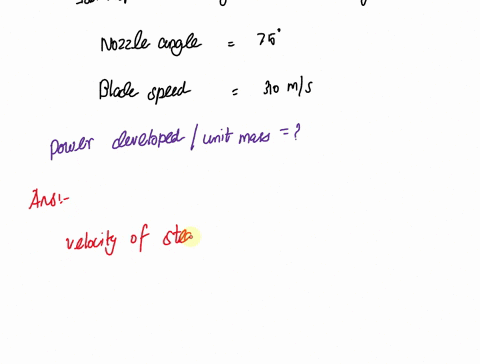 Nozzle angle = 75°
Blade speed = 310 m/s
Power developed / unit mass = ?
Ans:-
velocity of stea